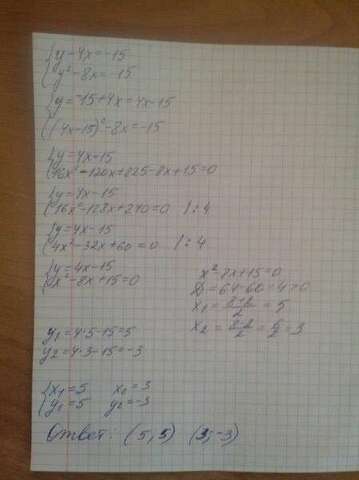 {y-4x=-15
{y²-8x=-15
{y=-15+4x=4x-15
{(4x-15)²-8x=-15
{y=4x-15
{16x²-120x+225-8x+15=0
{y=4x-15
{16x²-128x+240=0 |:4
{y=4x-15
{4x²-32x+60=0 |:4
{y=4x-15
{x²-8x+15=0
x²-8x+15=0
D=64-60=4>0
x₁=8+2/2=5
x₂=8-2/2=6/2=3
y₁=4·5-15=5
y₂=4·3-15=-3
{x₁=5 x₂=3
{y₁=5 y₂=-3
Ответ: (5,5) (3,-3)